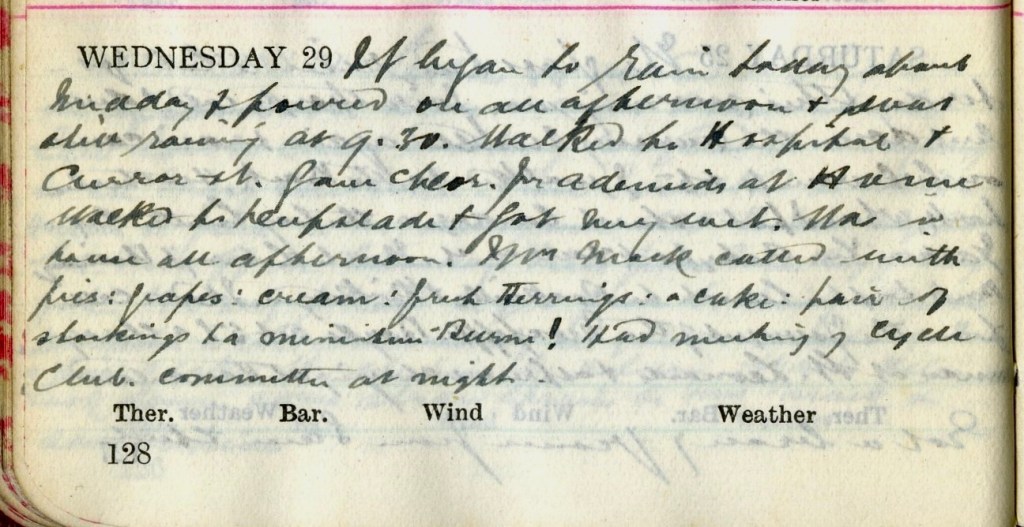 WEDNESDAY 29 It began to rain today about
midday & poured on all afternoon & was
still raining at 9.30. Walked to Hospital &
Curror st. Gave Chlor. for at Home
Walked to & got very wet. Was in
house all afternoon. Mrs Mack called with
pies: grapes: cream: fresh Herrings: a cake: pair of
stockings to Burns! Had meeting of Cycle
Club. committee at night.
Ther. Bar. Wind Weather
128